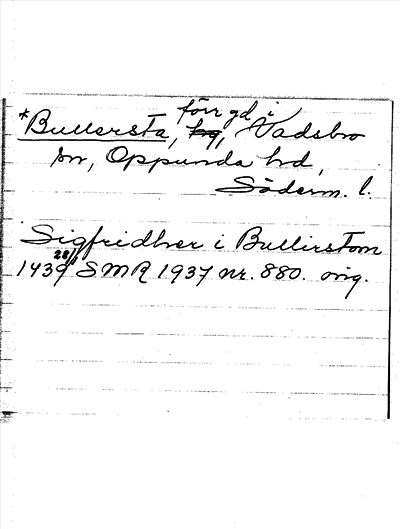 förr gd i
*Bullersta, hg, Vadsbro
sn, Oppunda hd,
Söderm. l.
Sigfridher i Bullirstom
1439 28/1 SMR 1937 nr. 880. orig.